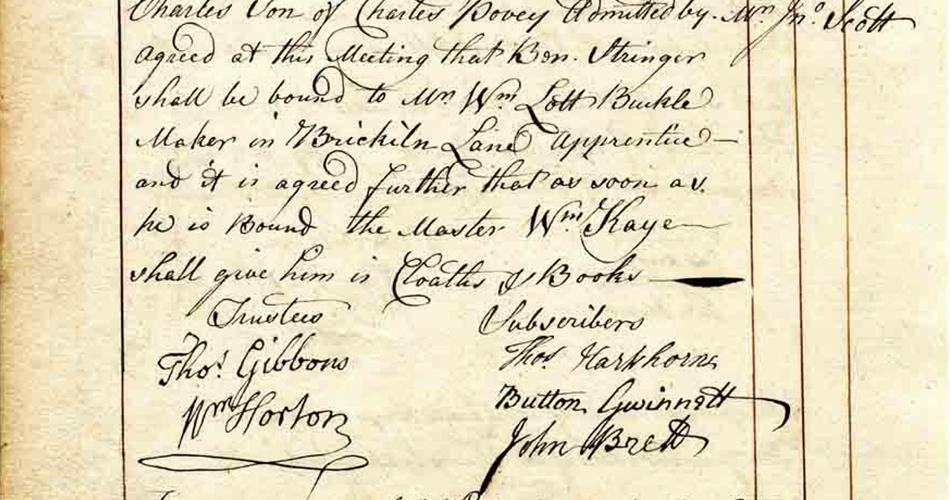 Charles Son of Charles Bovey Admitted by Mr. Jno. Scott
agreed at this Meeting that Ben. Stringer
shall be bound to Mr. Wm. Lott Buckle
Maker in Brickiln Lane Apprentice
and it is agreed further that as soon as
he is Bound the Master Wm. Kaye
shall give him is Cloaths & Books
Trustees
Subscribers
Thos. Gibbons
Thos. Harthorne
Wm Horton
Button Gwinnett
John Brett